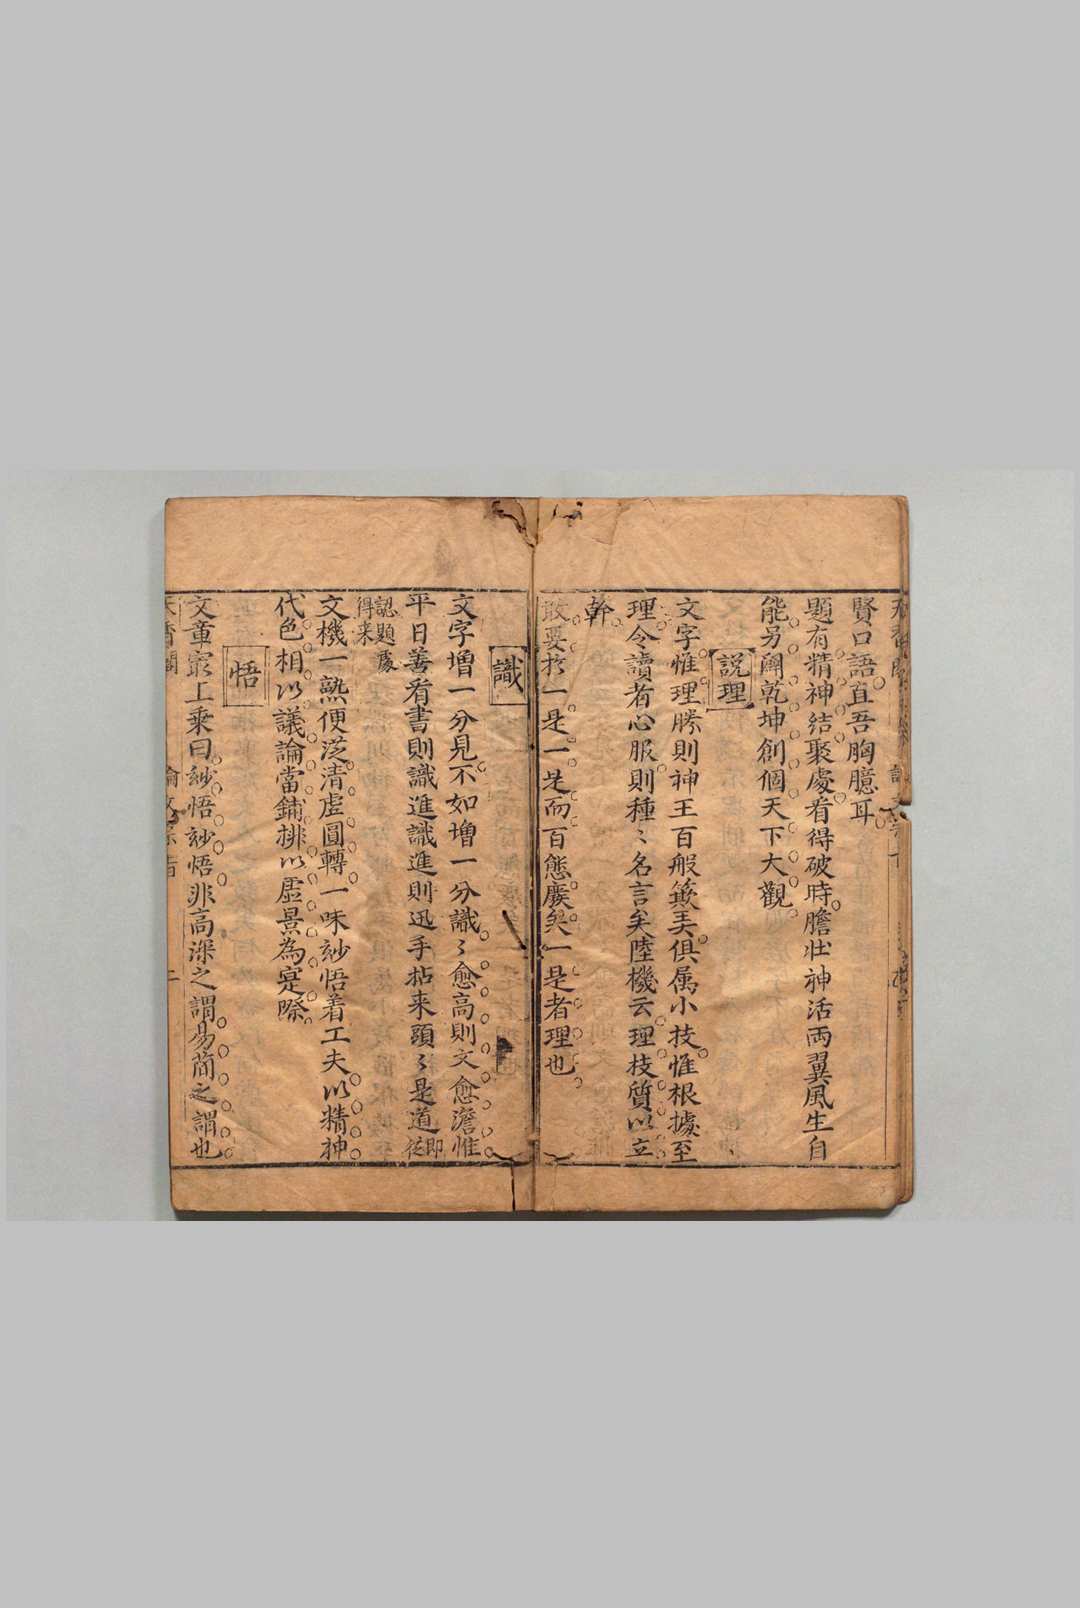 賢口語直吾胸臆耳
題有精神結聚處看得破時膽壯神活両翼風生自
能另闢乾坤創個天下大觀
說理
文字惟理勝則神王百般籨美俱属小技惟根據至
理令讀者心服則種〻名言矣陸機云理枝質以立
幹
敢要扵一是一是而百態廢矣一是者理也
識
文字增一分見不如增一分識〻愈高則文愈澹惟
平日善看書則識進識進則迅手拈来頭〻是道即従
認題處得来
文機一熟便泛清虛圓轉一味玅悟着工夫以精神
代色相以議論當鋪排以虛景為寔際
悟
文章最上乘曰玅悟玅悟非高深之謂易簡之謂也